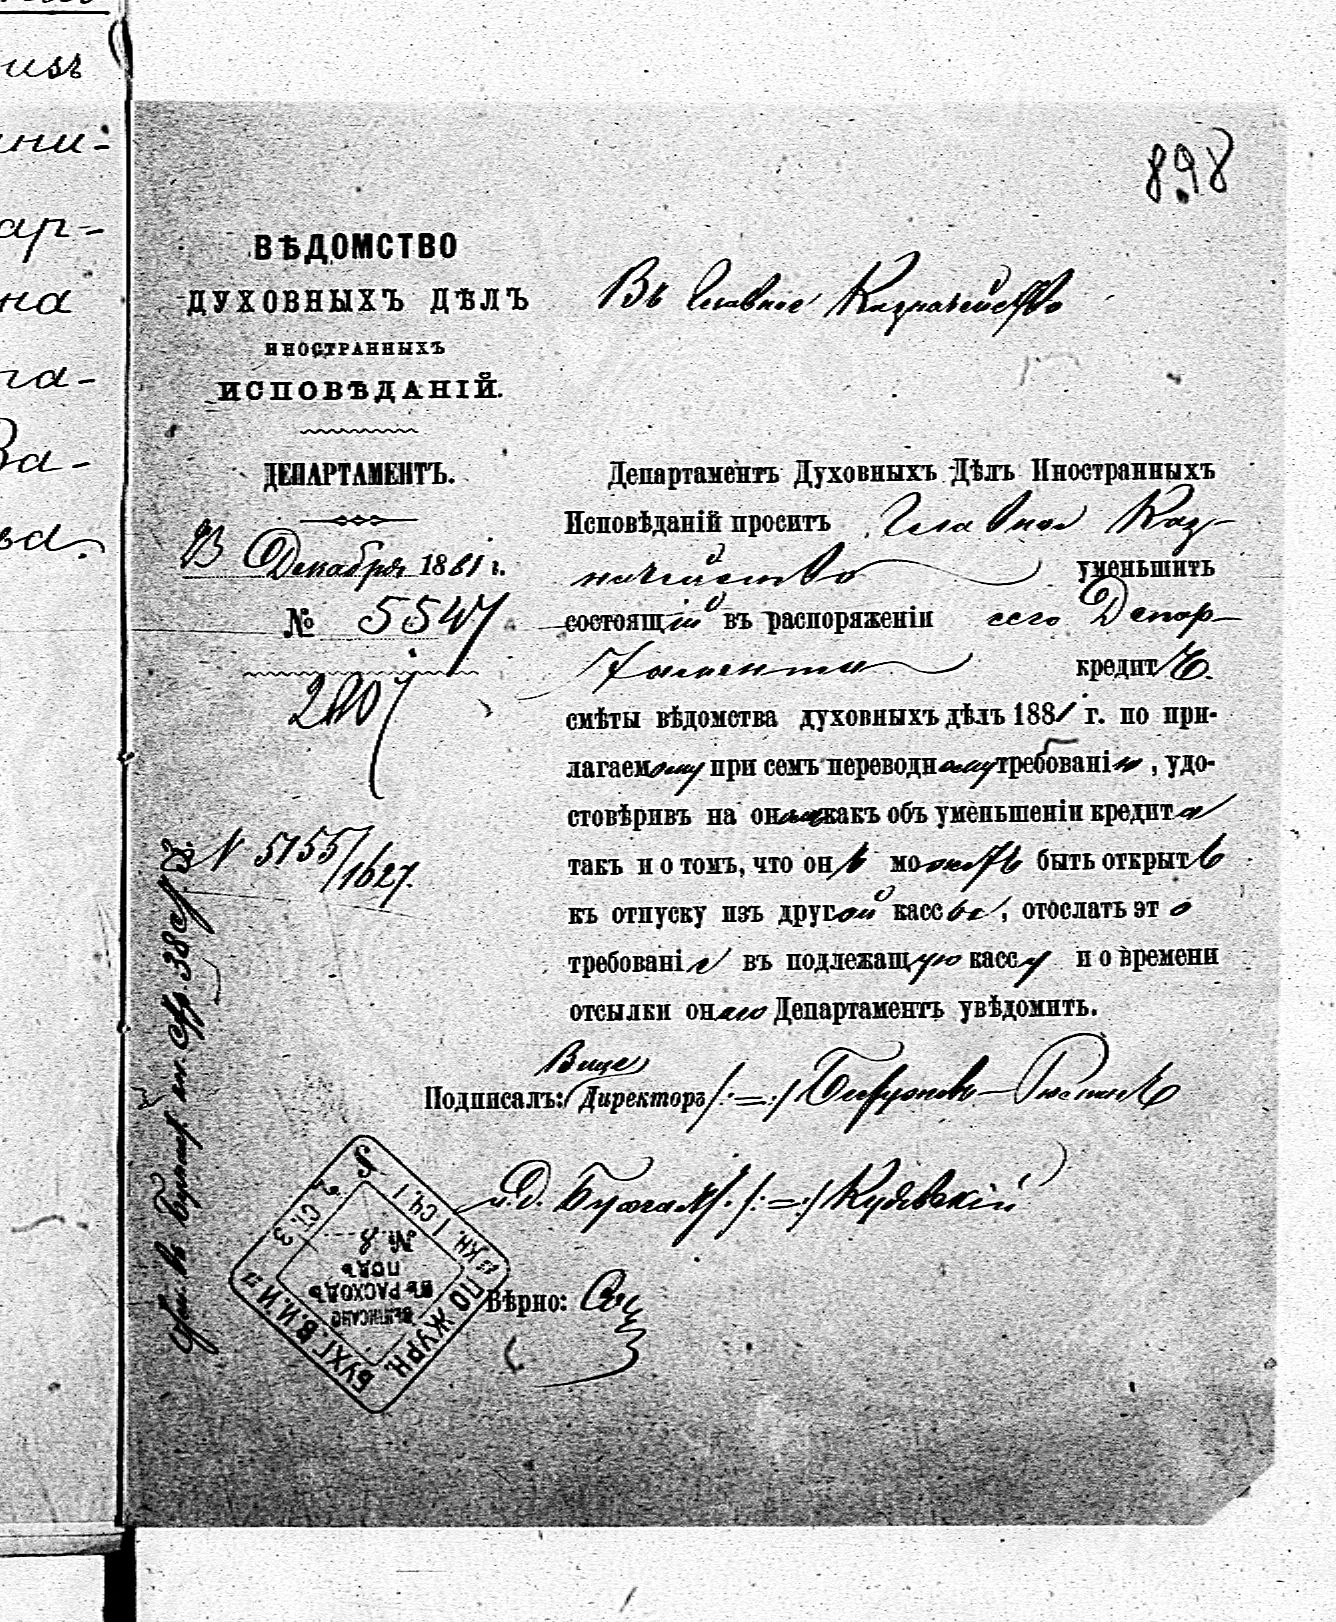 898
ВѢДОМСТВО
ДУХОВНЫХЪ ДѢЛЪ
ИНОСТРАННЫХЪ
ИСПОВѢДАНІЙ.
ДЕПАРТАМЕНТЪ.
Декабря 1881 г.
№ 5547
N 5155/1627.
Въ Главное Казначейство
Департаментъ Духовныхъ Дѣлъ Иностранныхъ
Исповѣданій проситъ Главное Каз-
начейство уменьшить
состоящій въ распоряженіи сего Депар-
тамента кредитъ
смѣты вѣдомства духовныхъ дѣлъ 1881 г. по при-
лагаемому при семъ переводному требованію, удо-
стовѣривъ на ономъ какъ объ уменьшеніи кредита
такъ и о томъ, что онъ можетъ быть открытъ
къ отпуску изъ другой кассы, отослать это
требованіе въ подлежащую кассу и о времени
отсылки онаго Департаментъ увѣдомить.
Вице
Подписалъ: Директоръ
и. д. Бухгалт.
Вѣрно:
БУХГ. В. И. И Д
ПО ЖУРН.
ВПИСАНО
ВЪ РАСХОДЪ
ПОДЪ
№ 8
Ст. 3
нив
ини-
ар-
на
га-
За-
ва.